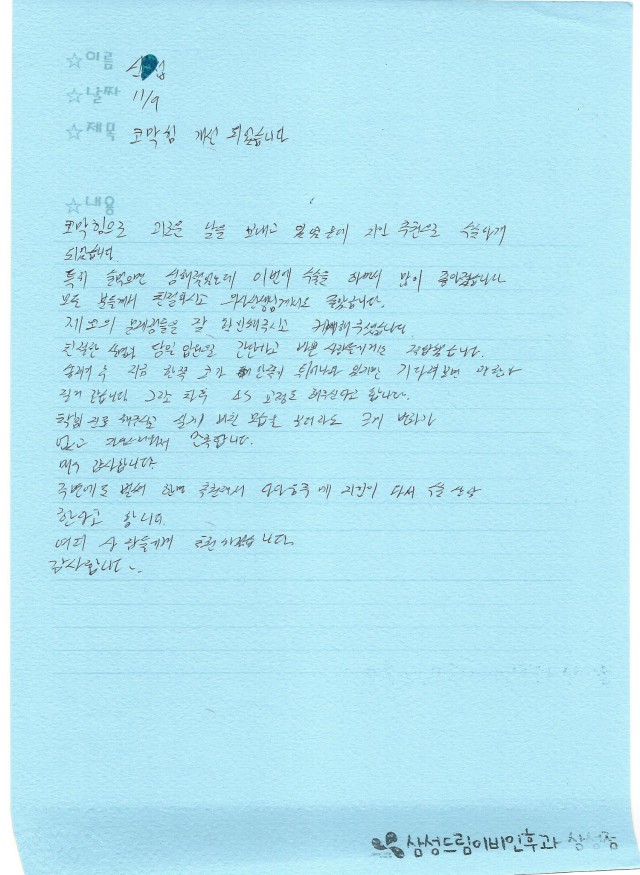 ☆이름 신 섭
☆날짜 11/9
☆제목 코막힘 개선 되었습니다
☆내용
코막힘으로 괴로운 날을 보내고 있었는데 지인 추천으로 수술하게
되었습니다.
특히 술먹으면 심해졌었는데 이번에 수술을 하면서 많이 좋아졌습니다
모든 분들께서 친절하시고 의사선생님께서도 좋았습니다.
저의 문제점들을 잘 확인해주시고 해주셨습니다
친절한 당일 입원으로 간단하고 바쁜 사람들에게는 적합했습니다.
후 지금 한쪽 코가 안쪽이 기다려보면
합니다 그도 차후 AS 교정도 해주신다고 합니다.
해주시고 쉽게 모습을 보더라도 크게 변화가
없고 자연스러워서 만족합니다.
매우 감사합니다
주변에도 벌써 한명 추천해서 지인이 다시 수술 상담
한다고 합니다.
여러 사람들에게 추천하겠습니다.
감사합니다~
삼성드림이비인후과 삼성점